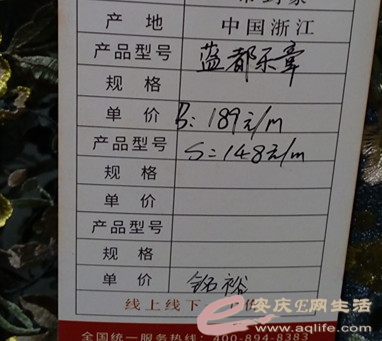 产地 中国浙江
产品型号 蓝都乐章
规格
单价 B:189元/m
产品型号 S:148元/m
规格
单价
产品型号
规格
单价 铭裕
线上线下
全国统一服务热线:400-894-8383
安庆E网生活
www.aqlife.com